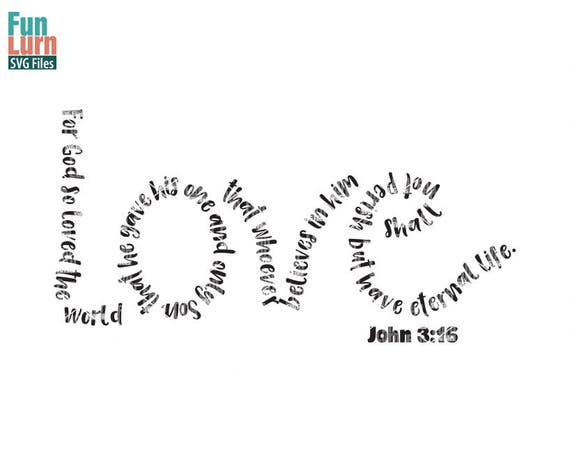 Fun
Lurn
SVG Files
For God so loved the
world
that he gave his one and only Son,
that whoever
believes in him
shall
not perish
but have eternal life.
John 3:16